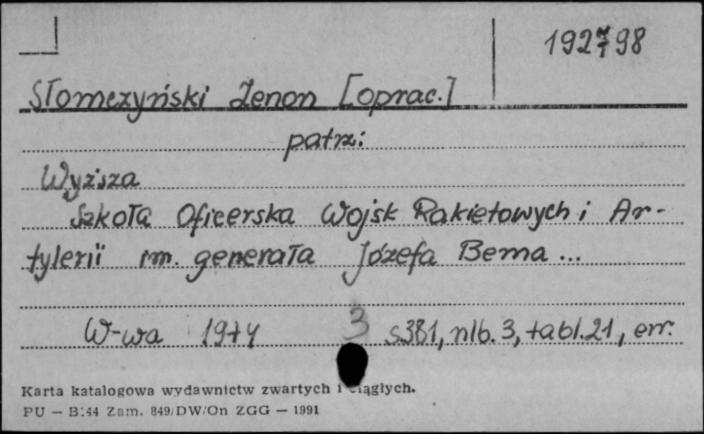 192798
Słomczyński Zenon [oprac.]
patrz:
Wyższa
Szkoła Oficerska Wojsk Rakietowych i Ar-
tylerii im. generała Józefa Bema ...
W-wa 1974 3 s381, nlb. 3, tabl. 21, err.
Karta katalogowa wydawnictw zwartych i ciągłych.
PU — B:44 Zam. 849/DW/On ZGG — 1991